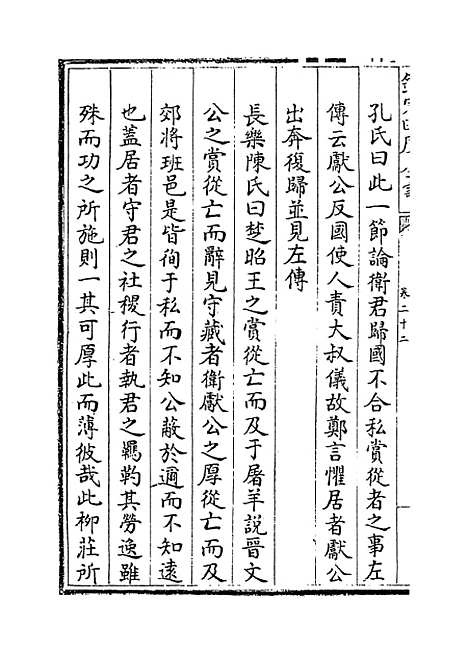 孔氏曰此一節論衛君歸國不合私賞從者之事左
傳云獻公反國使人責大叔儀故鄭言懼居者獻公
出奔復歸並見左傳
長樂陳氏曰楚昭王之賞從亡而及于屠羊說晉文
公之賞從亡而辭見守藏者衛獻公之厚從亡而及
郊將班邑是皆徇于私而不知公蔽於邇而不知遠
也蓋居者守君之社稷行者執君之羈靮其勞逸雖
殊而功之所施則一其可厚此而薄彼哉此柳莊所
卷二十二